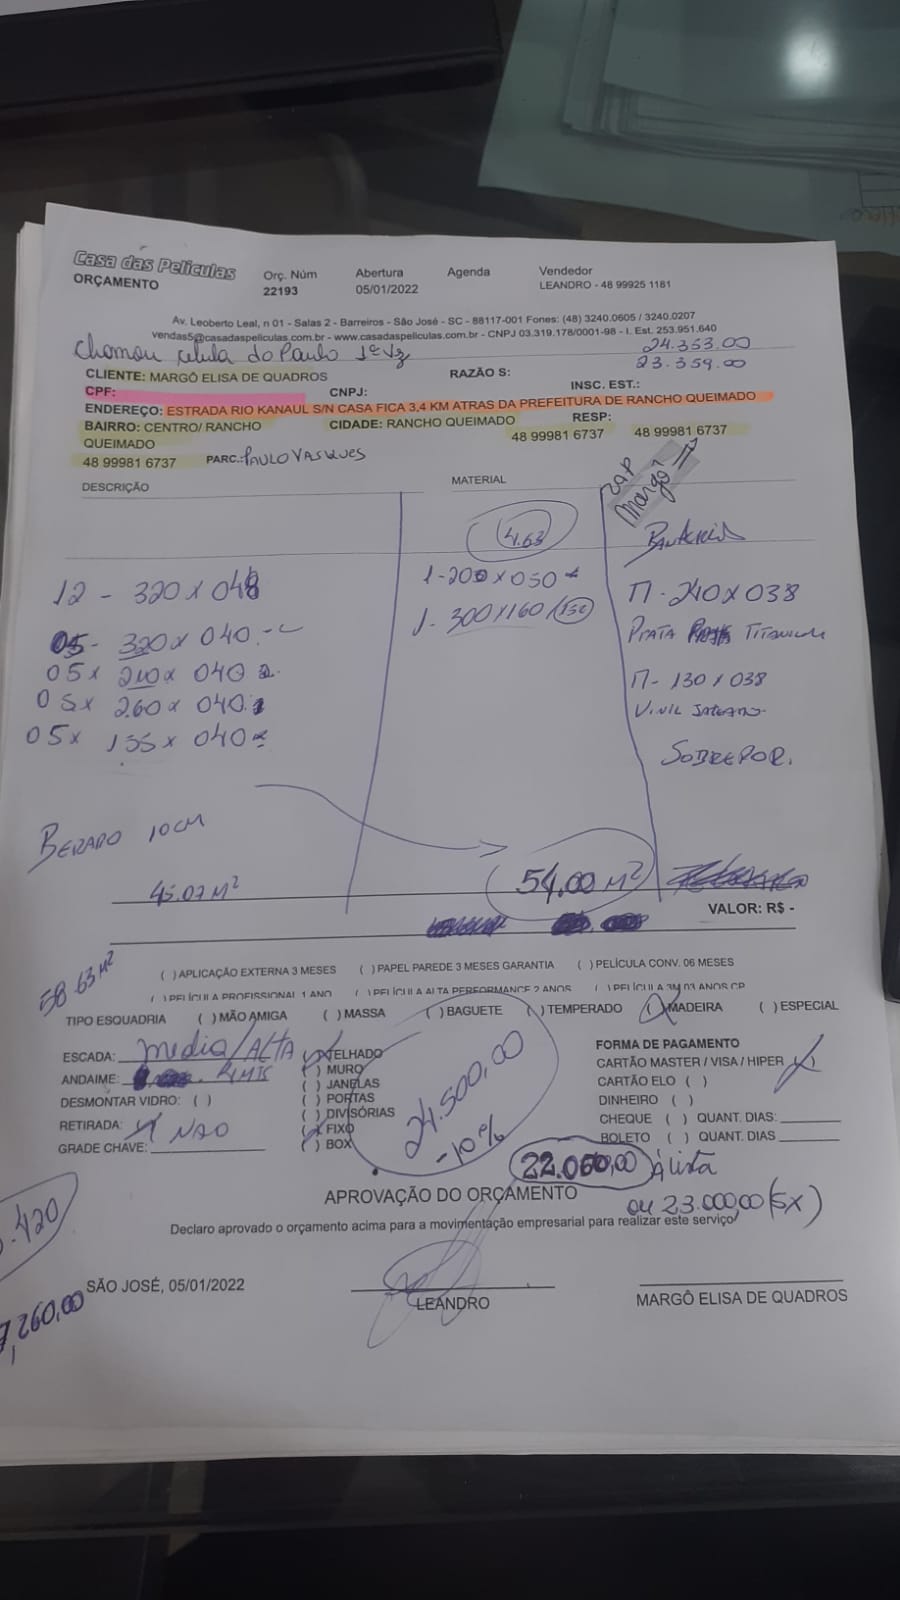 Casa das Películas
ORÇAMENTO
Orç. Núm
22193
Abertura
05/01/2022
Agenda
Vendedor
LEANDRO - 48 99925 1181
Av. Leoberto Leal, n 01 - Salas 2 - Barreiros - São José - SC - 88117-001 Fones: (48) 3240.0605 / 3240.0207
vendas5@casadaspeliculas.com.br - www.casadaspeliculas.com.br - CNPJ 03.319.178/0001-98 - I. Est. 253.951.640
Chamou do Paulo 1ª Vz
24.353.00
23.359.00
CLIENTE: MARGÔ ELISA DE QUADROS
RAZÃO S:
CPF:
CNPJ:
INSC. EST.:
ENDEREÇO: ESTRADA RIO KANAUL S/N CASA FICA 3,4 KM ATRAS DA PREFEITURA DE RANCHO QUEIMADO
BAIRRO: CENTRO/ RANCHO QUEIMADO
CIDADE: RANCHO QUEIMADO
RESP:
48 99981 6737
48 99981 6737
48 99981 6737
PARC: PAULO VASQUES
DESCRIÇÃO
MATERIAL
ZAP
Margô
4.63
12 - 320 x 048
05 - 320 x 040
05 x 210 x 040
05 x 260 x 040
05 x 155 x 040
1 - 200 x 050
1 - 300 x 160 / 150
11 - 240 x 038
PRATA TITANIUM
11 - 130 x 038
VINIL JATEADO
SOBREPOR.
BERADO 10CM
45.07 M²
54,00 M²
VALOR: R$ -
58 63 M²
( ) APLICAÇÃO EXTERNA 3 MESES ( ) PAPEL PAREDE 3 MESES GARANTIA ( ) PELÍCULA CONV. 06 MESES
( ) PELÍCULA PROFISSIONAL 1 ANO ( ) PELÍCULA ALTA PERFORMANCE 2 ANOS ( ) PELÍCULA 3M 03 ANOS CP
TIPO ESQUADRIA ( ) MÃO AMIGA ( ) MASSA ( ) BAGUETE ( ) TEMPERADO ( ) MADEIRA ( ) ESPECIAL
ESCADA: media / ALTA
ANDAIME:
DESMONTAR VIDRO: ( )
RETIRADA: NAO
GRADE CHAVE:
( ) TELHADO
( ) MURO
( ) JANELAS
( ) PORTAS
( ) DIVISÓRIAS
( ) FIXO
( ) BOX
24.500,00
-10%
FORMA DE PAGAMENTO
CARTÃO MASTER / VISA / HIPER ( )
CARTÃO ELO ( )
DINHEIRO ( )
CHEQUE ( ) QUANT. DIAS:
BOLETO ( ) QUANT. DIAS
22.050,00 À vista
ou 23.000,00 (5x)
APROVAÇÃO DO ORÇAMENTO
Declaro aprovado o orçamento acima para a movimentação empresarial para realizar este serviço
.420
260,00
SÃO JOSÉ, 05/01/2022
LEANDRO
MARGÔ ELISA DE QUADROS